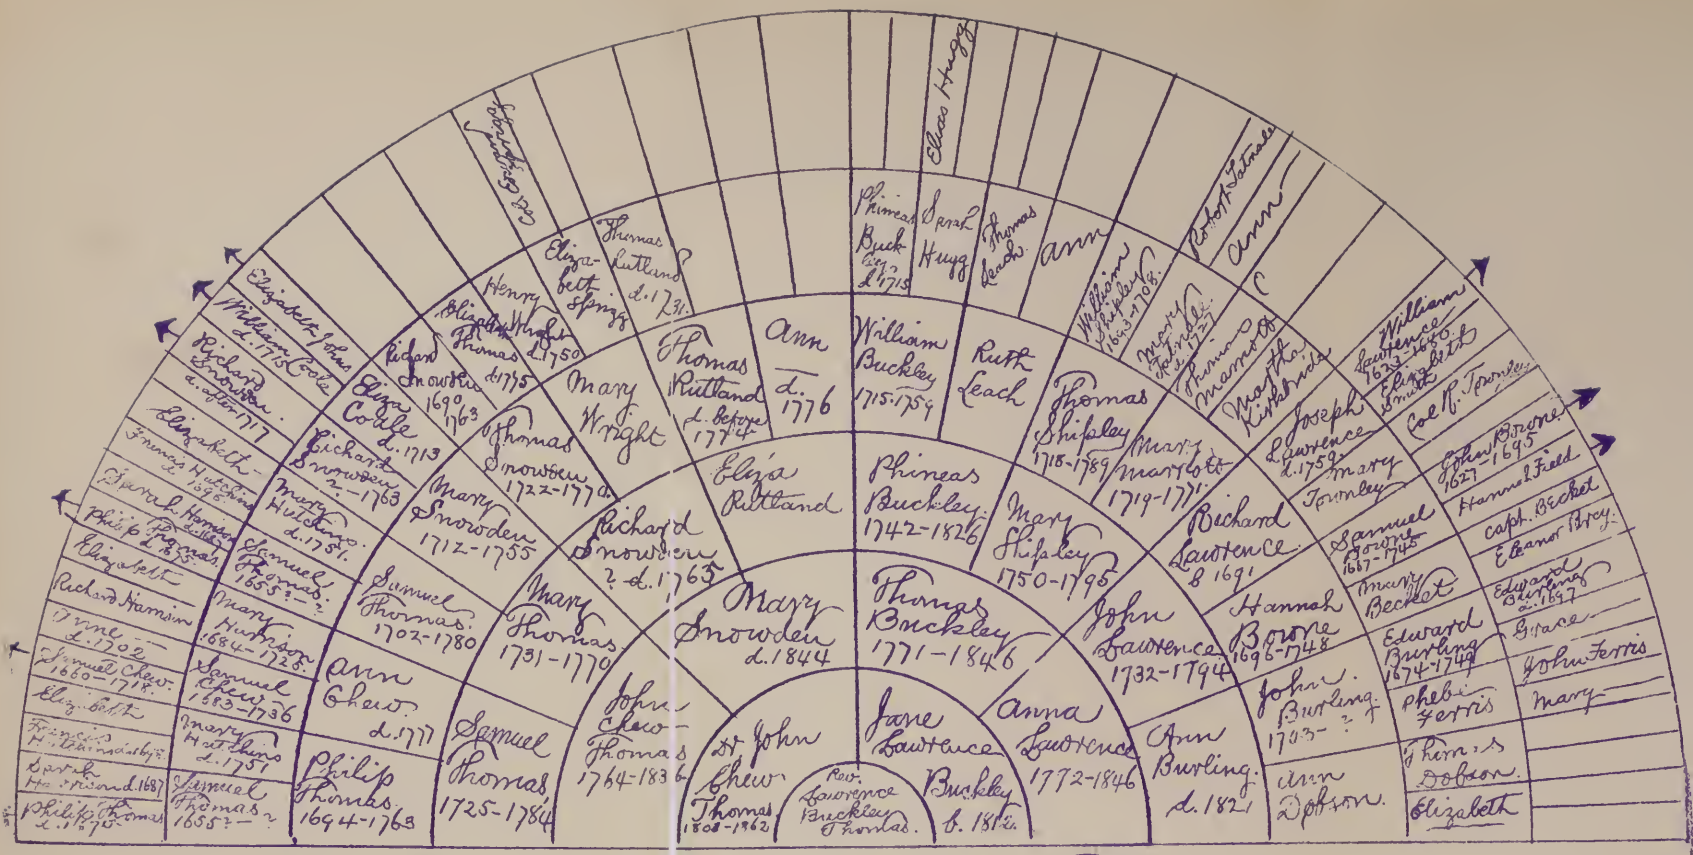 Rev.
Lawrence
Buckley
Thomas.
Dr John
Chew
Thomas.
Jane
Lawrence
Buckley
John
Chew
Thomas
Mary
Snowden
d. 1844
Thomas
Buckley
1771-1846
Anna
Lawrence
1772-1846
Samuel
Thomas
1725-1784
Mary
Thomas.
1731-1770
Richard
Snowden
? d. 1765
Eliza
Rutland
Phineas
Buckley.
1742-1826
Mary
Shipley
1750-1795
John
Lawrence
1732-1794
Ann
Burling.
d. 1821
Philip
Thomas.
1694-1763
Ann
Chew.
d. 1777
Samuel
Thomas.
1702-1780
Mary
Snowden
1712-1755
Thomas
Snowden
1722-1770.
Mary
Wright
Thomas
Rutland
d. before
1774
Ann
d.
1776
William
Buckley
1715-1759
Ruth
Leach
Thomas
Shipley
1718-1789
Mary
Marriott
1719-1771.
Richard
Lawrence
b 1691
Hannah
Bowne
1696-1748
John.
Burling.
1703- ?
Ann
Dobson.
Samuel
Thomas
1655?- ?
Mary
Hutchins
d. 1751
Samuel
Chew
1683-1736
Mary
Harrison
1684-1725.
Samuel
Thomas.
1655?- ?
Mary
Hutchins.
d. 1751.
Richard
Snowden
? -1763
Eliza
Coale
d. 1713
Richard
Snowden
1690
1763
Henry
Wright
d. 1750
Eliza-
beth
Sprigg
Thomas
Rutland
d. 1731.
Phineas
Buck
ley.
d 1715
Sarah
Hugg
Thomas
Leach.
Ann
William
Shipley
1693-1768.
Mary
Tatnall.
d. 1727
Thomas
Marriott
Martha
Kirkbride
Joseph
Lawrence
d. 1759.
Mary
Townley
Samuel
Bowne
1667-1745
Mary
Becket
Edward
Burling
1674-1749
Phebe
Ferris
Thomas
Dobson.
Elizabeth
Philip Thomas
Sarah
Harrison d. 1687
Francis
Elizabeth
Samuel Chew.
1660-1718.
Anne
d. 1702
Richard Harrison
Elizabeth
Philip Thomas.
d. 1675
Sarah Harrison
d. 1687
Francis Hutchins
1698
Elizabeth
Richard
Snowden.
d. after 1717
William Coale
d. 1715
Elizabeth Johns
Col. Sprigg
Elias Hugg
Robert Tatnall
Ann
William
Lawrence
1623-1680.
Elizabeth
Smith
Col R. Townley
John Bowne
1627-1695
Hannah Field
Capt. Becket
Eleanor Brey.
Edward
Burling
d. 1697
Grace
John Ferris
Mary